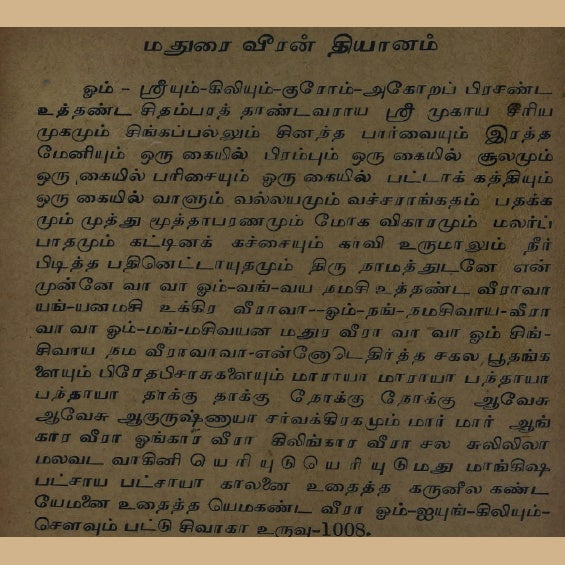 மதுரை வீரன் தியானம்
ஓம் - ஸ்ரீயும்-கிலியும்-குரோம்-அகோறப் பிரசண்ட
உத்தண்ட சிதம்பரத் தாண்டவராய ஸ்ரீ முகாய சீரிய
முகமும் சிங்கப்பல்லும் சினந்த பார்வையும் இரத்த
மேனியும் ஒரு கையில் பிரம்பும் ஒரு கையில் சூலமும்
ஒரு கையில் பரிசையும் ஓரு கையில் பட்டாக் கத்தியும்
ஒரு கையில் வாளும் வல்லயமும் வச்சராங்கதம் பதக்க
மும் முத்து மூத்தாபரணமும் மோக விகாரமும் மலர்ப்
பாதமும் கட்டினக் கச்சையும் காவி உருமாலும் நீர்
பிடித்த பதினெட்டாயுதமும் திரு நாமத்துடனே என்
முன்னே வா வா ஓம்-வங்-வய நமசி உத்தண்ட வீராவா
யங்-யனமசி உக்கிர வீராவா--ஓம்-நங்-நமசிவாய-வீரா
வா வா ஓம்-மங்-மசிவயன மதுர வீரா வா வா ஓம் சிங்-
சிவாய நம வீராவாவா-என்னோடெதிர்த்த சகல பூதங்க
ளையும் பிரேதபிசாசுகளையும் மாராயா மாராயா பந்தாயா
பந்தாயா தாக்கு தாக்கு நோக்கு நோக்கு ஆவேசு
ஆவேசு ஆகுருஷ்ணாயா சர்வக்கிரகமும் மார் மார் ஆங்
கார வீரா ஓங்கார வீரா கிலிங்கார வீரா சல சுலிலிலா
மலவட வாகினி யெரியுடுயெரியுடுமது மாங்கிஷ
பட்சாய பட்சாயா காலனை உதைத்த கருனீல கண்ட
யேமனை உதைத்த யெமகண்ட வீரா ஓம்-ஐயுங்-கிலியும்-
சௌவும் பட்டு சிவாகா உருவு-1008.